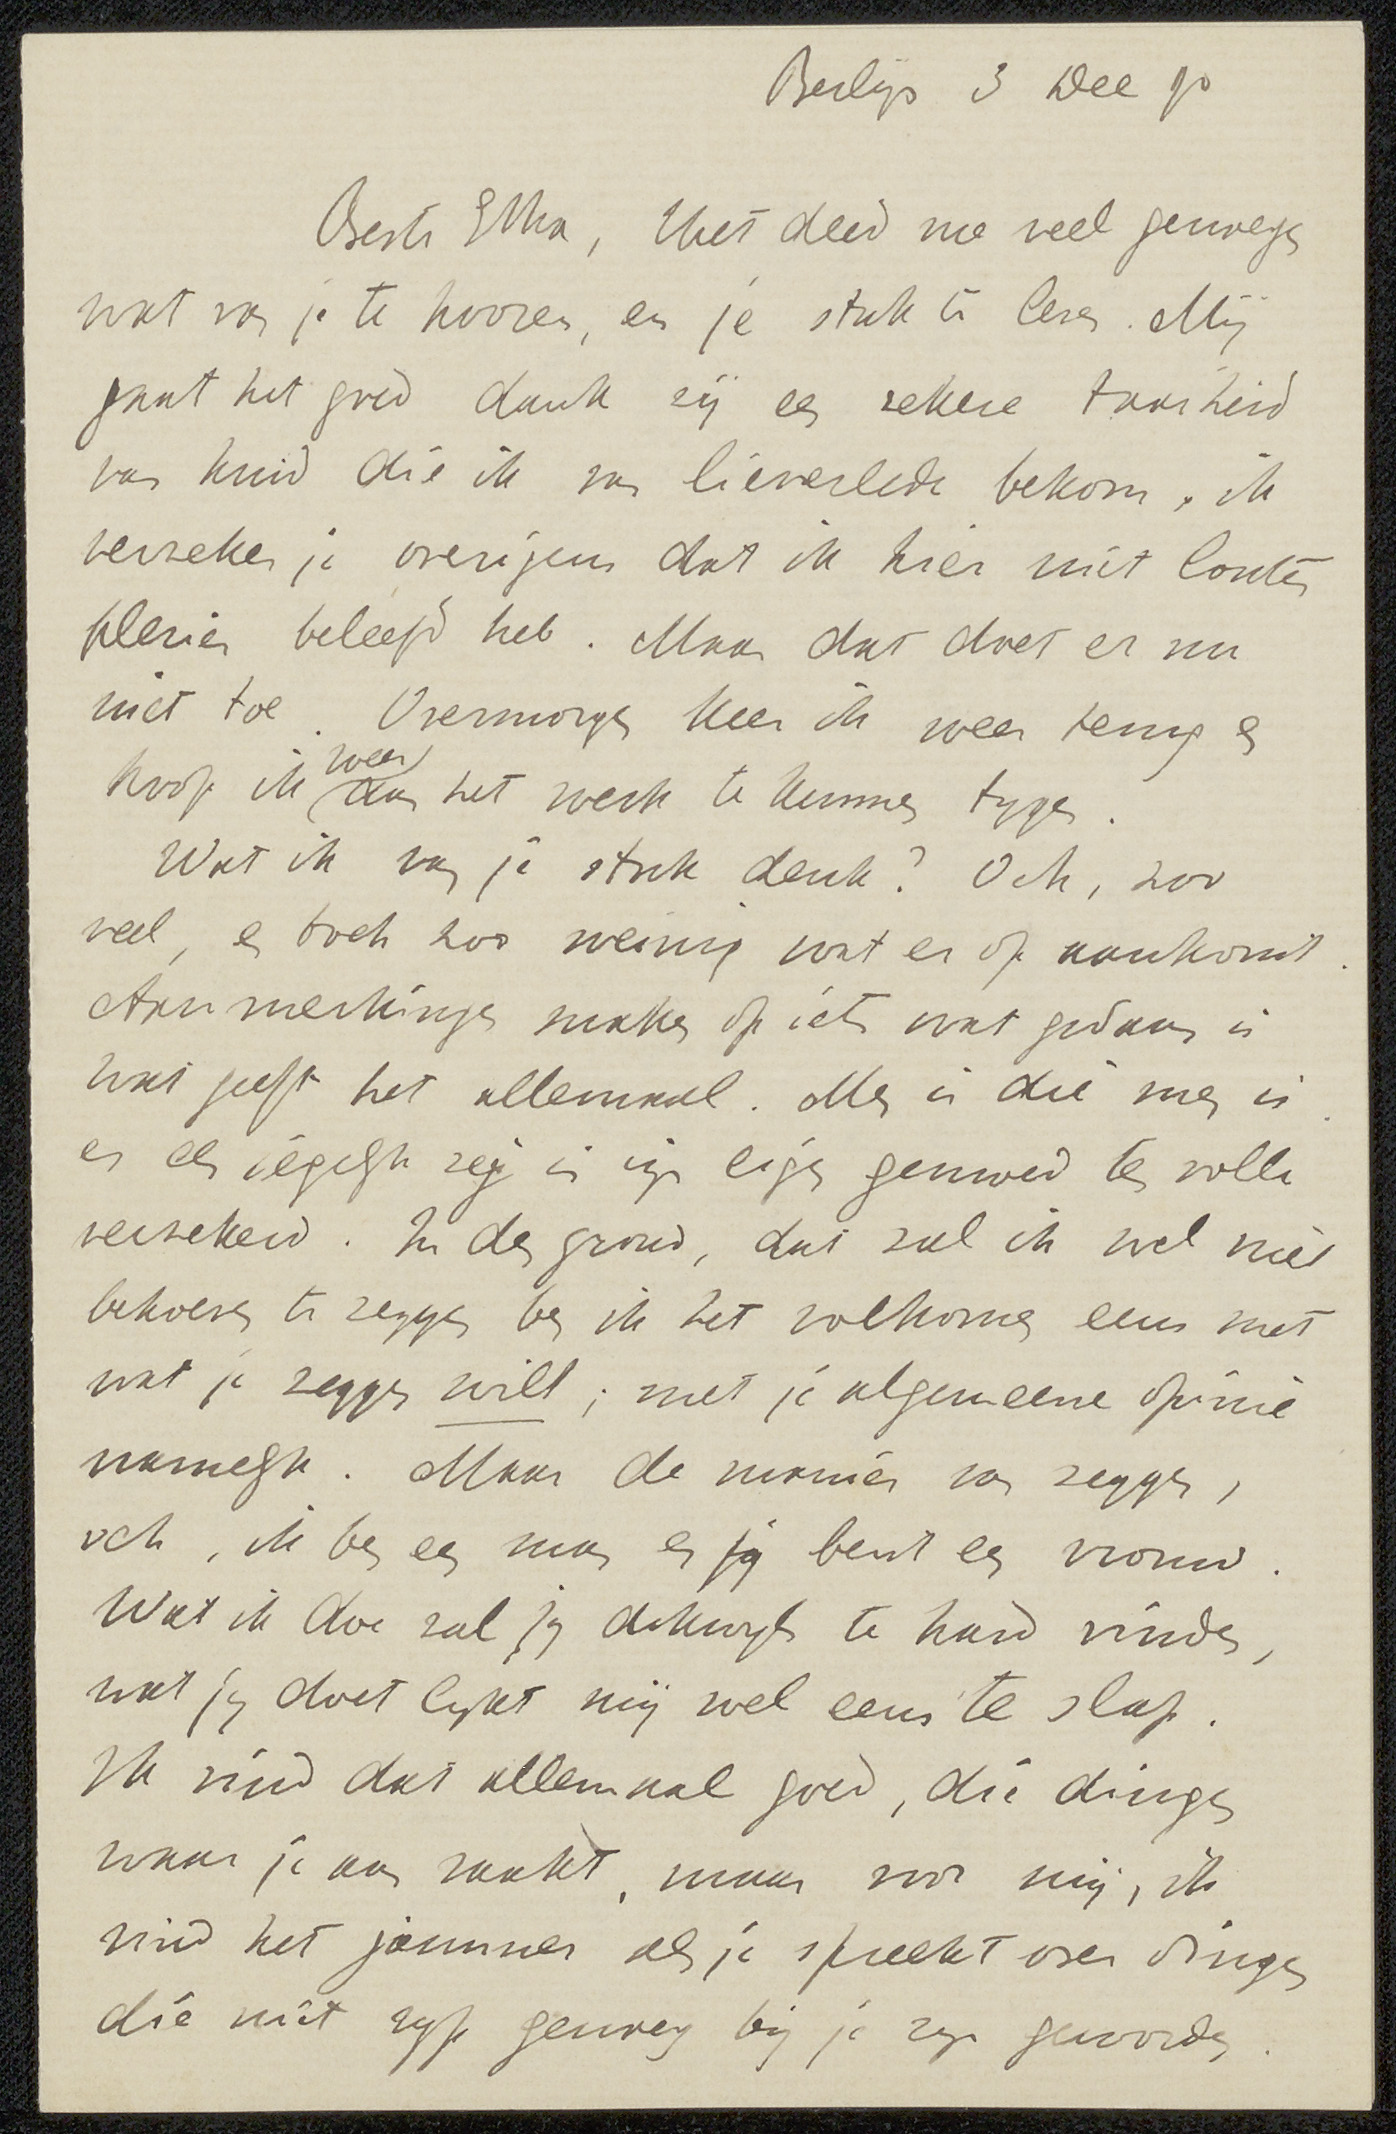 Berlijn 3 Dec 90
Beste Etha, Het deed me veel genoegen
wat van je te hooren, en je stuk te lezen. Mij
gaat het goed dank zij een zekere taaiheid
van huid die ik van lieverlede bekom, ik
verzeker je overigens dat ik hier niet louter
plezier beleefd heb. Maar dat doet er nu
niet toe. Overmorgen keer ik weer terug en
hoop ik weer aan het werk te kunnen tygen.
Wat ik van je stuk denk? Och, zoo
veel, en toch zoo weinig wat er op aankomt.
Aanmerkingen maken op iets wat gedaan is
wat geeft het allemaal. Men is die men is
en een iegelyk zij in zyn eigen gemoed ten volle
verzekerd. In den grond, dat zal ik wel niet
behoeven te zeggen ben ik het volkomen eens met
wat je zeggen wilt; met je algemeene opinie
namelyk. Maar de manier van zeggen,
och, ik ben een man en jy bent een vrouw.
Wat ik doe zal jy dikwyls te hard vinden,
wat jy doet lykt mij wel eens te slap.
Ik vind dat allemaal goed, die dingen
waar je aan raakt, maar voor mij, ik
vind het jammer als je spreekt over dingen
die niet ryp genoeg bij je zyn geworden.